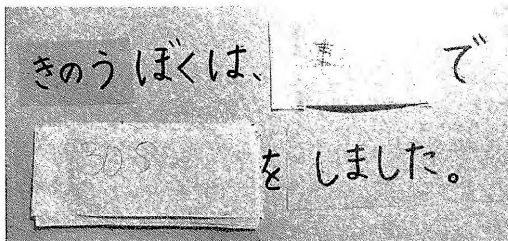 きのう ぼくは、 で
を しました。